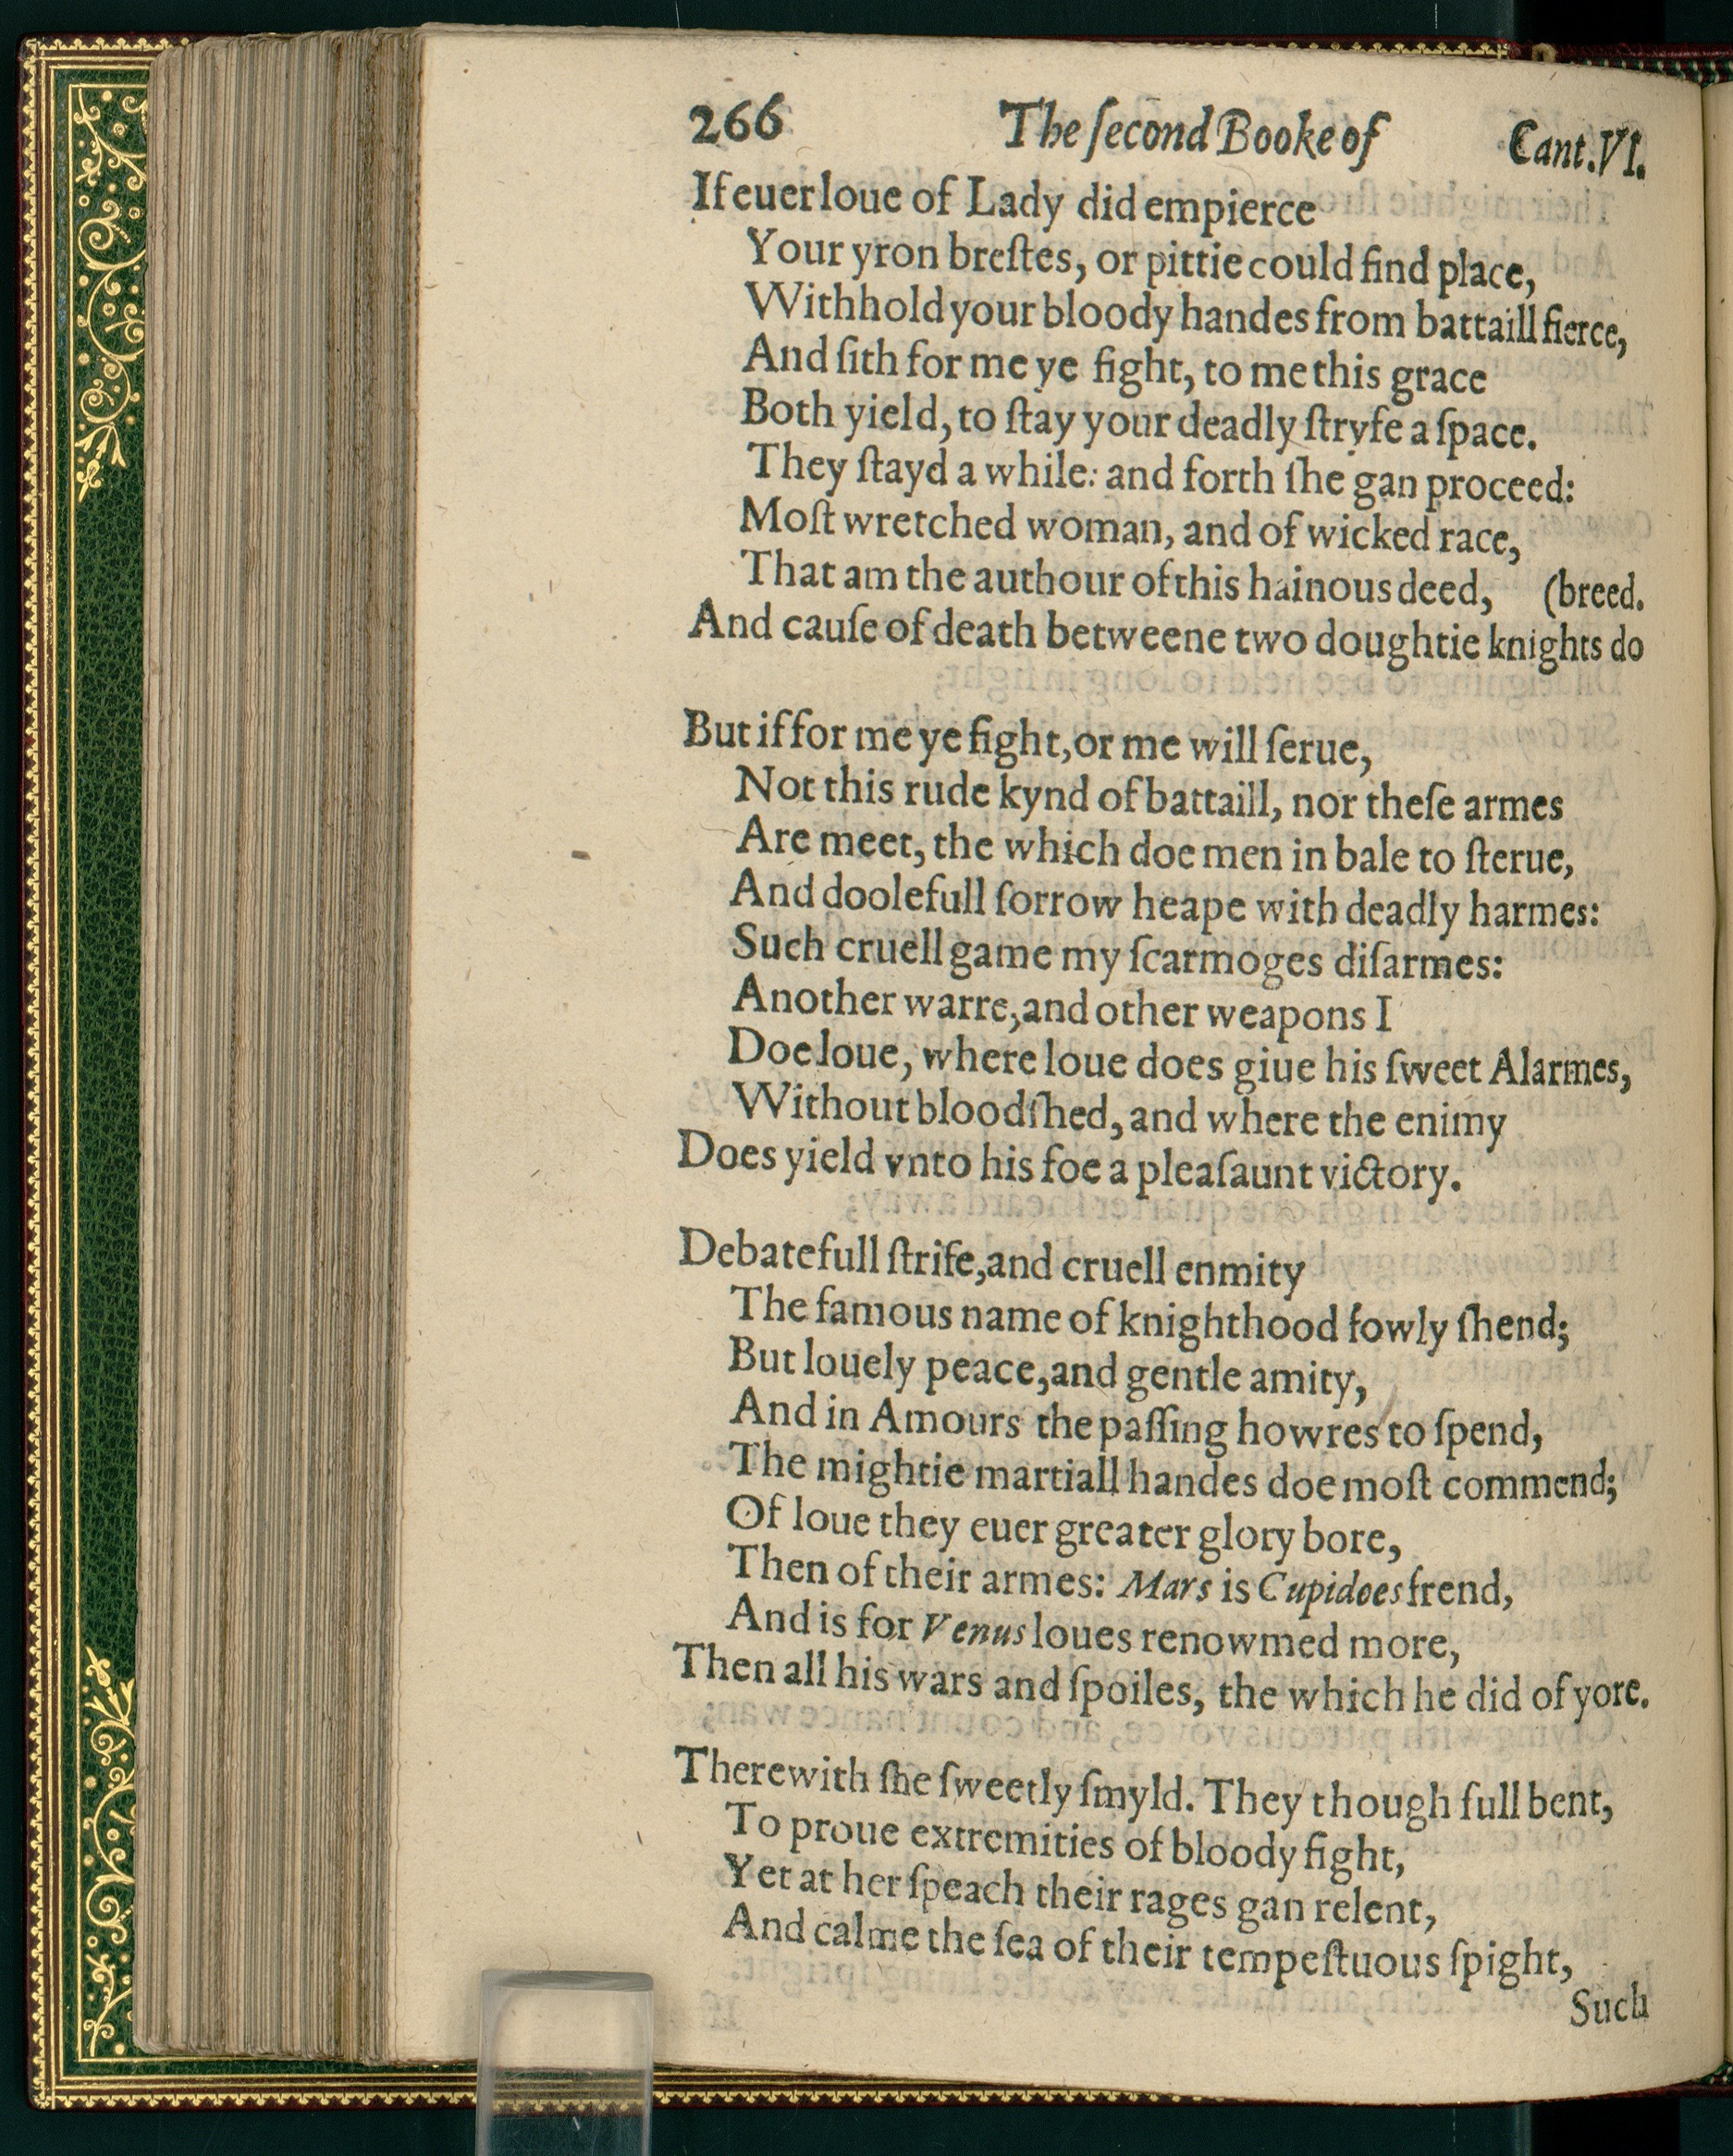 266 The ſecond Booke of Cant. VI.
If euer loue of Lady did empierce
Your yron breſtes, or pittie could find place,
Withhold your bloody handes from battaill fierce,
And ſith for me ye fight, to me this grace
Both yield, to ſtay your deadly ſtryfe a ſpace.
They ſtayd a while: and forth ſhe gan proceed:
Moſt wretched woman, and of wicked race,
That am the authour of this hainous deed, (breed.
And cauſe of death betweene two doughtie knights do
But if for me ye fight, or me will ſerue,
Not this rude kynd of battaill, nor theſe armes
Are meet, the which doe men in bale to ſterue,
And doolefull ſorrow heape with deadly harmes:
Such cruell game my ſcarmoges diſarmes:
Another warre, and other weapons I
Doe loue, where loue does giue his ſweet Alarmes,
Without bloodſhed, and where the enimy
Does yield vnto his foe a pleaſaunt victory.
Debatefull ſtrife, and cruell enmity
The famous name of knighthood fowly ſhend;
But louely peace, and gentle amity,
And in Amours the paſſing howres to ſpend,
The mightie martiall handes doe moſt commend;
Of loue they euer greater glory bore,
Then of their armes: Mars is Cupidoes frend,
And is for Venus loues renowmed more,
Then all his wars and ſpoiles, the which he did of yore.
Therewith ſhe ſweetly ſmyld. They though full bent,
To proue extremities of bloody fight,
Yet at her ſpeach their rages gan relent,
And calme the ſea of their tempeſtuous ſpight,
Such